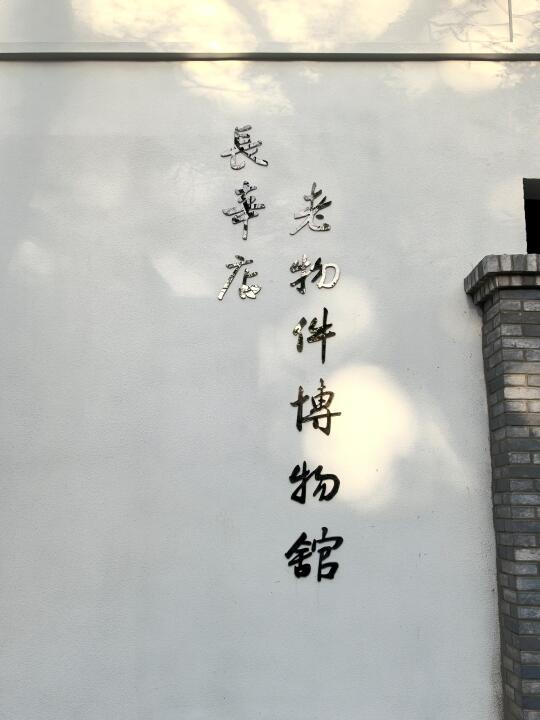 老物件博物舘
長辛店